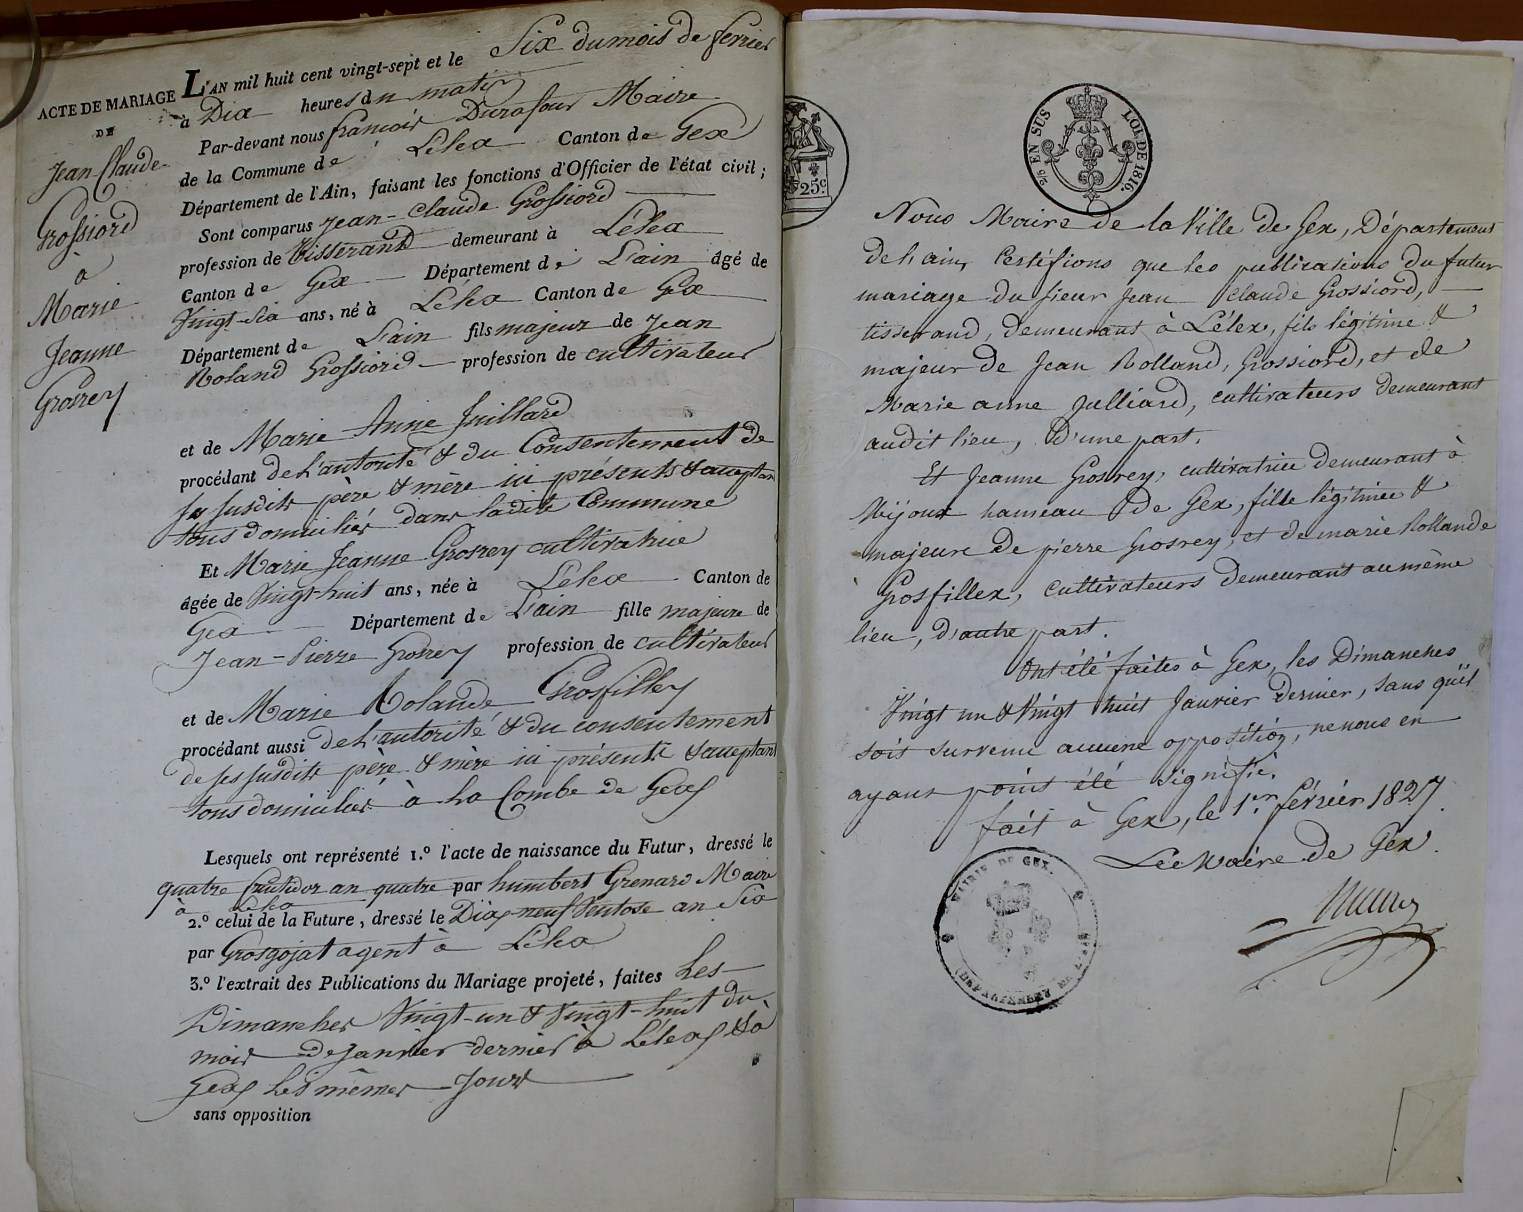 ACTE DE MARIAGE
DE
Jean-Claude
Grossiord
à
Marie
Jeanne
Grosrey
L'AN mil huit cent vingt-sept et le Six du mois de fevrier
à Dix heures du matin
Par-devant nous françois Durafour Maire
de la Commune de Lélex Canton de Gex
Département de l'Ain, faisant les fonctions d'Officier de l'état civil ;
Sont comparus Jean-Claude Grossiord
profession de tisserand demeurant à Lélex
Canton de Gex Département de L'ain âgé de
Vingt-Six ans, né à Lélex Canton de Gex
Département de L'ain fils majeur de Jean
Roland Grossiord profession de cultivateur
et de Marie Anne Juillard
procédant de L'autorité & du Consentement de
ses susdits père & mère ici présents & acceptan
tous domiciliés dans ladite Commune
Et Marie Jeanne Grosrey cultivatrice
âgée de Vingt-huit ans, née à Lélex Canton de
Gex Département de L'ain fille majeure de
Jean-Pierre Grosrey profession de cultivateur
et de Marie Rolande Grosfilley
procédant aussi de L'autorité & du consentement
de ses susdits père & mère ici présents & acceptant
tous domiciliés à La Combe de Gex
Lesquels ont représenté 1.º l'acte de naissance du Futur, dressé le
quatre fructidor an quatre par humbert Grenard Maire
à Lélex
2.º celui de la Future, dressé le Dix neuf Ventose an Six
par Grosgojat agent à Lélex
3.º l'extrait des Publications du Mariage projeté, faites Les
Dimanches Vingt-un & Vingt-huit du
mois de Janvier dernier à Lélex & à
Gex Les mêmes Jours
sans opposition
25c
2/5 EN SUS LOI DE 1816.
Nous Maire de la Ville de Gex, Département
de L'ain, Certifions que les publications du futur
mariage du sieur Jean Claude Grossiord,
tisserand, demeurant à Lélex, fils légitime &
majeur de Jean Rolland, Grossiord, et de
Marie anne Julliard, cultivateurs demeurant
audit lieu, D'une part.
Et Jeanne Grosrey, cultivatrice demeurant à
Mijoux hameau de Gex, fille légitime &
majeure de pierre Grosrey, et de marie Rollande
Grosfillex, cultivateurs demeurant au même
lieu, d'autre part.
Ont été faites à Gex, les Dimanches
Vingt un & Vingt huit Janvier dernier, sans qu'il
soit survenu aucune opposition, ne nous en
ayant point été signifié.
fait à Gex, le 1er. février 1827.
Le Maire de Gex.
MAIRIE DE GEX.
DÉPARTEMENT DE L'AIN